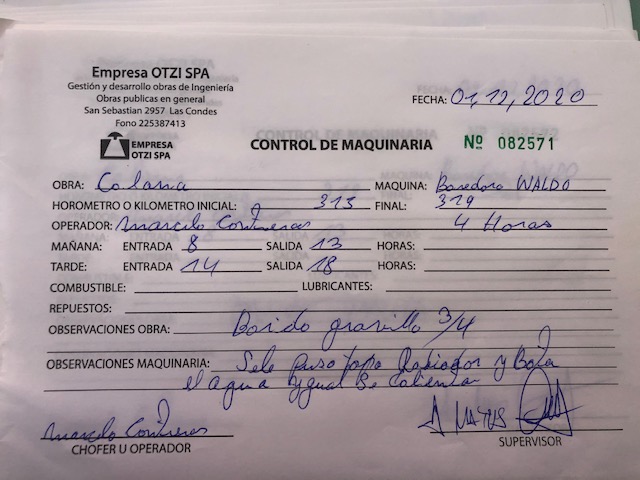 Empresa OTZI SPA
Gestión y desarrollo obras de Ingeniería
Obras publicas en general
San Sebastian 2957 Las Condes
Fono 225387413
FECHA: 01/12/2020
EMPRESA
OTZI SPA
CONTROL DE MAQUINARIA Nº 082571
OBRA: Calama MAQUINA:
HOROMETRO O KILOMETRO INICIAL: 315 FINAL: 319
OPERADOR: Marcelo Contreras 4 Horas
MAÑANA: ENTRADA 8 SALIDA 13 HORAS:
TARDE: ENTRADA 14 SALIDA 18 HORAS:
COMBUSTIBLE: LUBRICANTES:
REPUESTOS:
OBSERVACIONES OBRA: gravilla 3/4
OBSERVACIONES MAQUINARIA: Radiador y
el agua
Marcelo Contreras
CHOFER U OPERADOR
SUPERVISOR